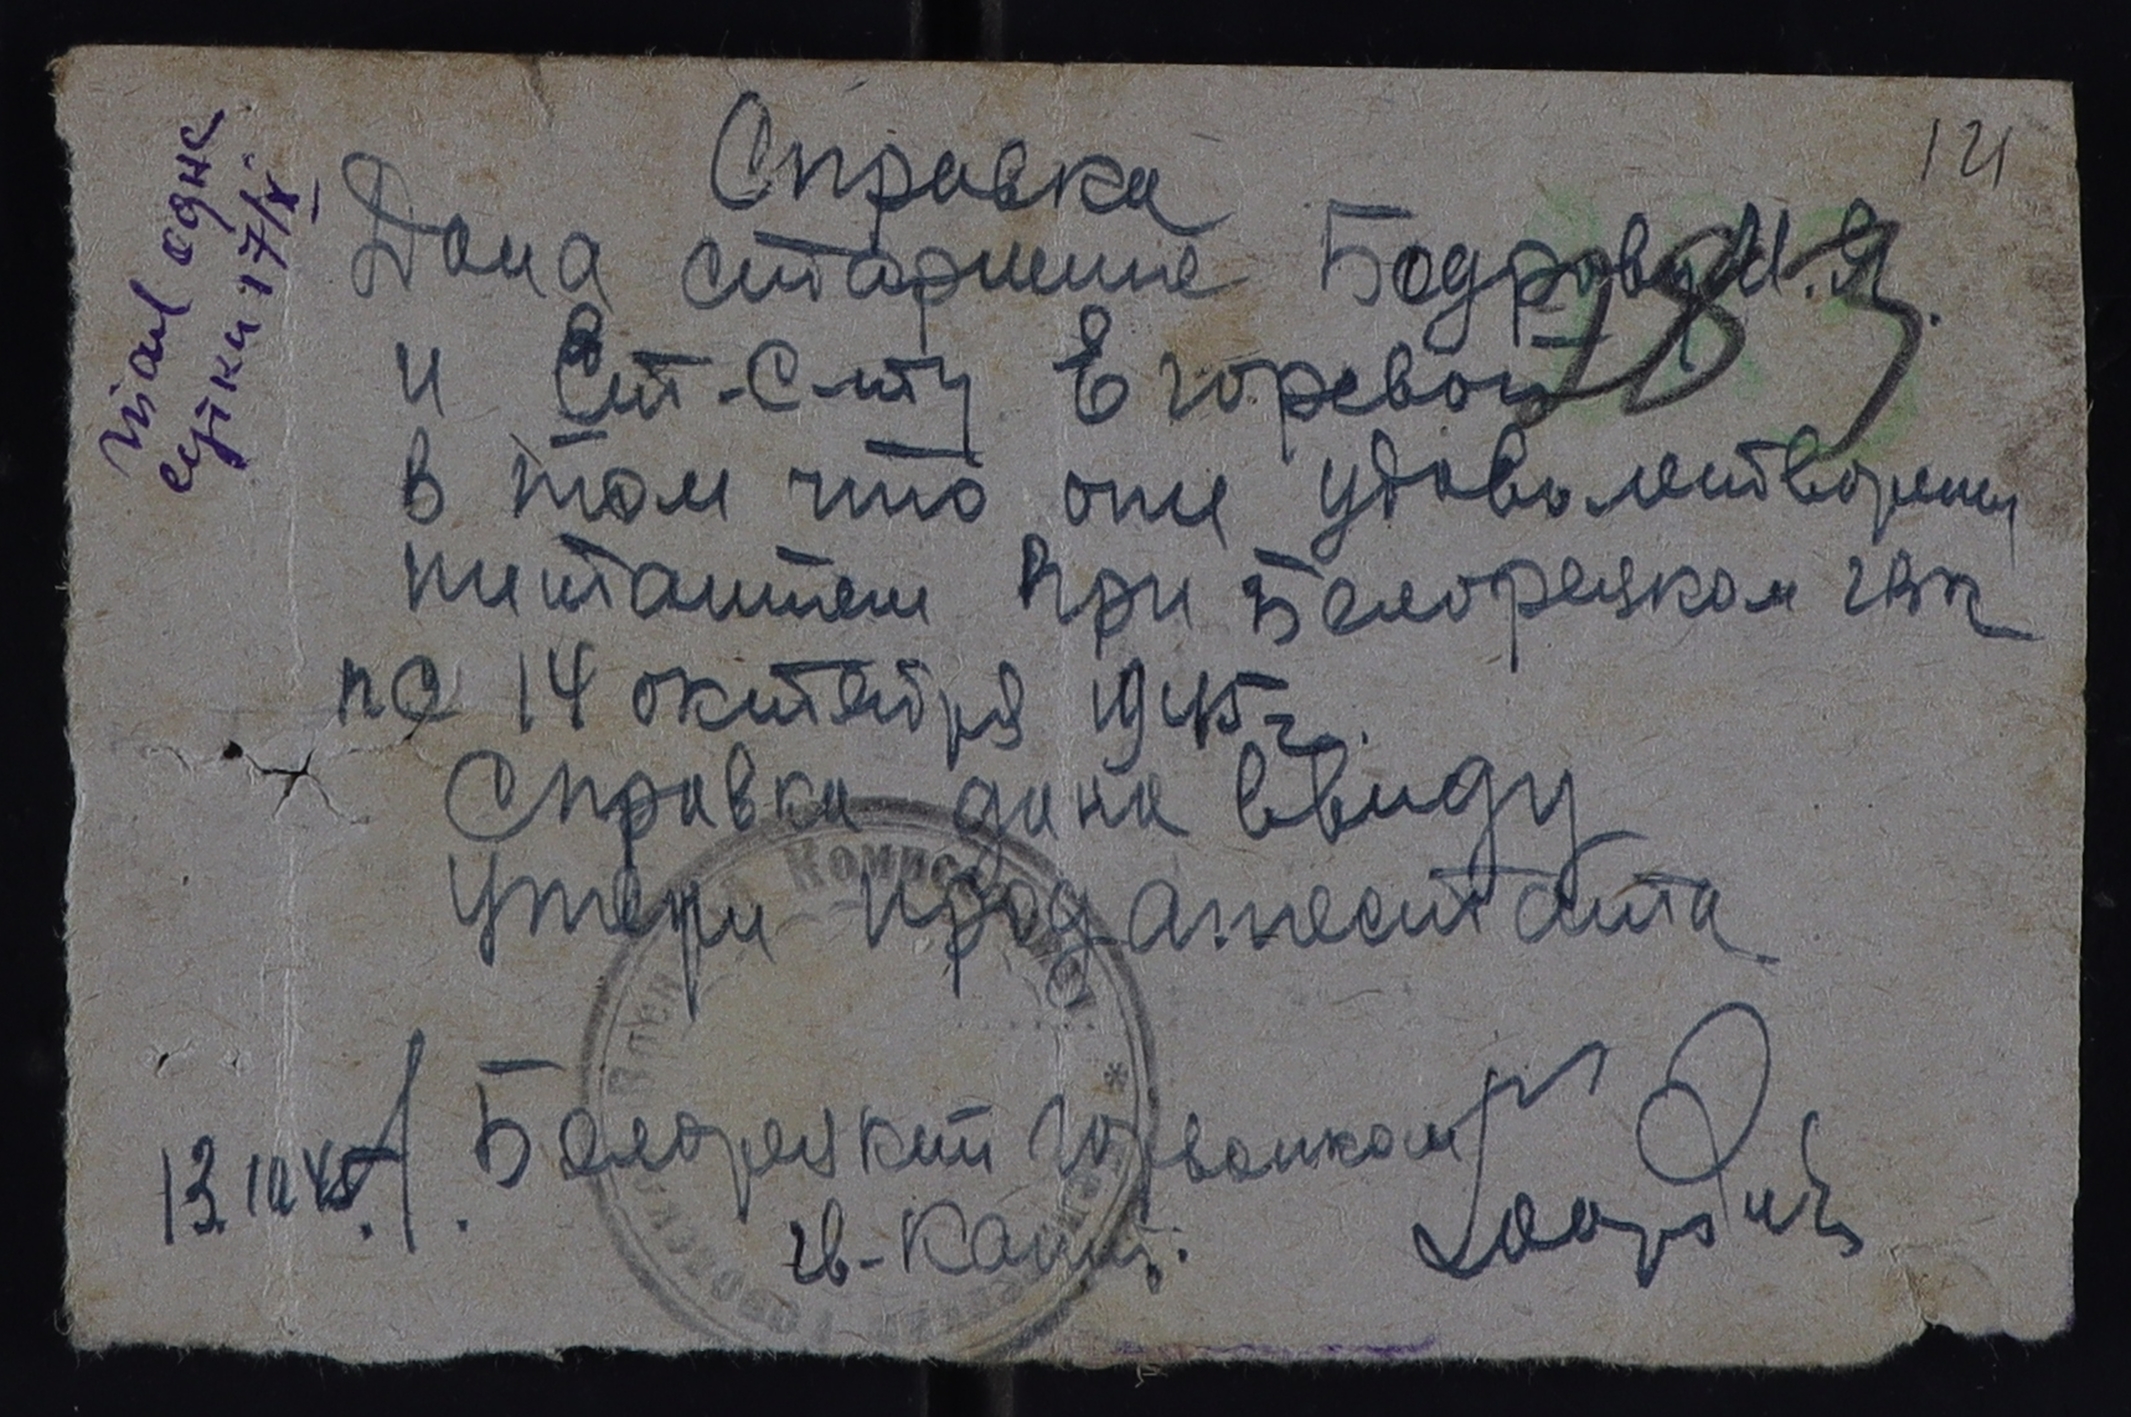 121
Справка
Дана старшине Бодрову М.Я.
183
и Ст-С-нту Егоревой
в том что они удовольстворены
питантем при Белорецком гвк
по 14 октября 1945 г.
Справка дана ввиду
утери прод атестата
13.10.45. Белорецкий горвоинком
гв-Капит.
одне
сутки 17/X
Комисс